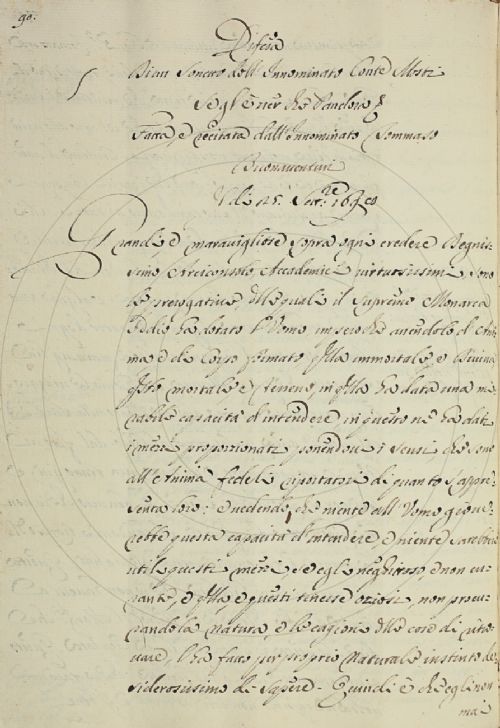 90.
Difesa
Di un Sonetto dell'Innominato Conte Mosti
Segl'è ver che
Fatta, e recitata dall'Innominato Tommaso
Buonaventuri
Grandi, e maravigliose sopra ogni credere Begnis=
simo Arciconsolo, Accademici virtuosissimi, sono
le prerogative, delle quali il supremo Monarca
Iddio ha dotato l'Uomo imperoche avendolo d'Ani=
ma e di Corpo formato q̃lla immortale, e Divina
q̃sto mortale e terreno, in q̃lla ha data una mi=
rabile capacità d'intendere, in questo ne ha dati
i mezzi proporzionati ponendovi i sensi che sono
all'Anima fedeli riportatori di quanto s'appre=
senta loro: e vedendo, che niente all'Uomo giove=
rebbe questa capacità d'intendere, e niente sarebbe
utile questi mezzi, se egli neghittoso, e non cu=
rante, e q̃lla e questi tenesse oziosi, non procu=
rando la natura, e le cagioni delle cose di ritro=
vare, l'ha fatto per proprio naturale instinto de=
siderosissimo di sapere. Quindi è che egli non
mai